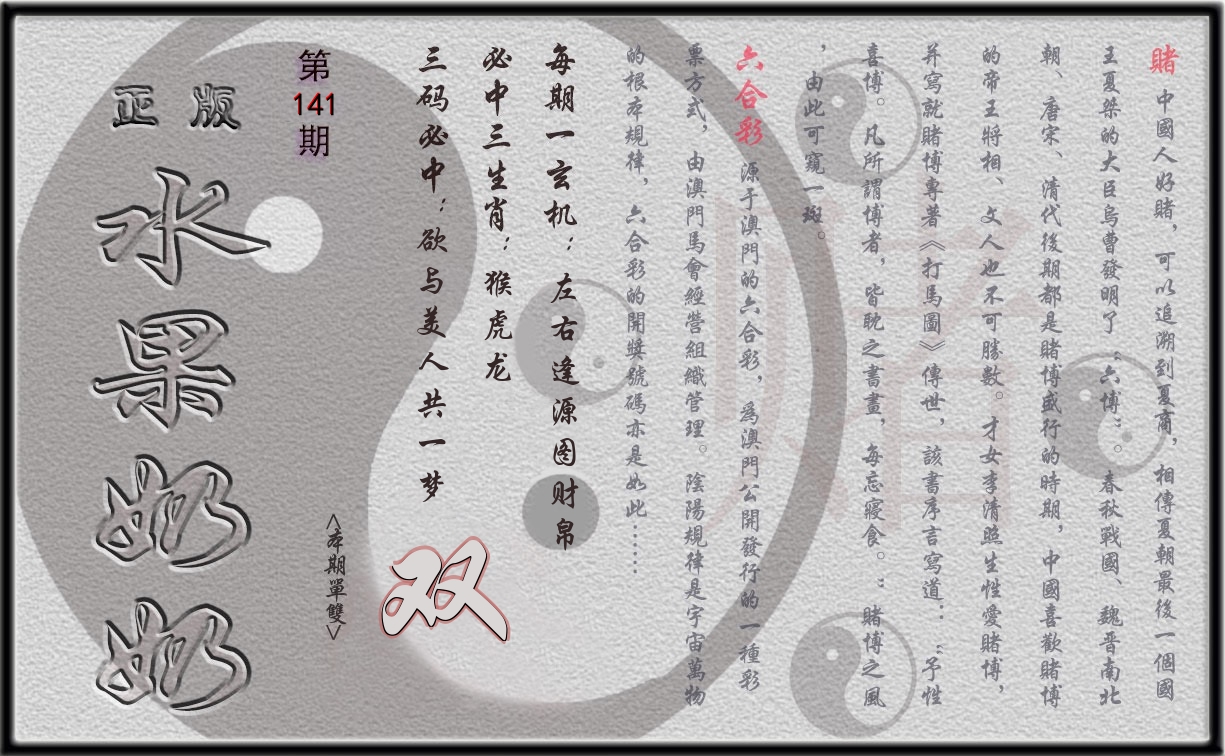 賭 中國人好賭，可以追溯到夏商，相傳夏朝最後一個國
王夏桀的大臣烏曹發明了“六博”。春秋戰國、魏晋南北
朝、唐宋、清代後期都是賭博盛行的時期，中國喜歡賭博
的帝王將相、文人也不可勝數。才女李清照生性愛賭博，
并寫就賭博專著《打馬圖》傳世，該書序言寫道：“予性
喜博。凡所謂博者，皆耽之書畫，每忘寢食。：賭博之風
，由此可窺一斑。
六合彩 源于澳門的六合彩，為澳門公開發行的一種彩
票方式，由澳門馬會經營組織管理。陰陽規律是宇宙萬物
的根本規律，六合彩的開獎號碼亦是如此……
每期一玄机：左右逢源图财帛
必中三生肖：猴虎龙
三码必中：欲与美人共一梦
双
<本期單雙>
第
141
期
正版
水果奶奶
賭